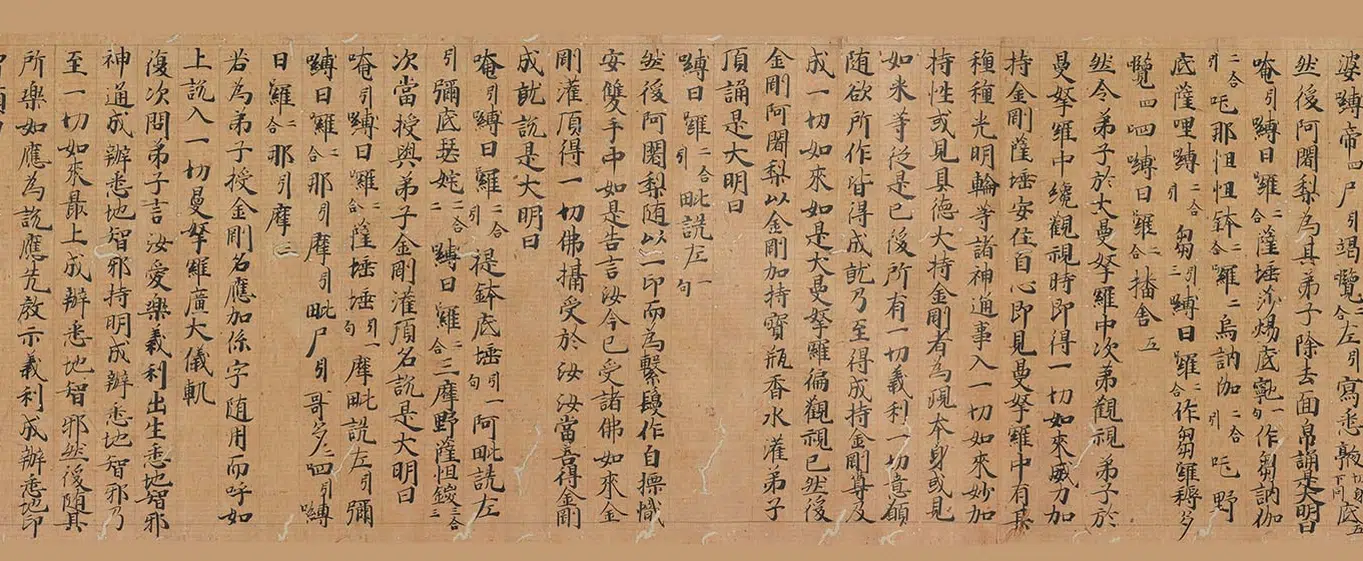 婆嚩帝四尸引竭覽二合左引寫悉
然後阿闍梨為其弟子除去面帛誦是大明曰
唵引嚩日囉二合薩埵莎煬底一句作芻訥伽
二合引吒那怛怛鉢二合囉二烏訥伽二合引吒野
底薩哩嚩二合引芻三嚩日囉二合作芻囉耨多
覽四四嚩日囉二合播舍五
然令弟子於大曼拏羅中次第觀視弟子於
曼拏羅中纔觀視時即得一切如來威力加
持金剛薩埵安住自心即見曼拏羅中有其
種種光明輪等諸神通事入一切如來妙加
持性或見具德大持金剛者為現本身或見
如来等從是已後所有一切義利一切意願
随欲所作皆得成就乃至得成持金剛尊及
成一切如来如是大曼拏羅徧觀視已然後
金剛阿闍梨以金剛加持寶瓶香水灌弟子
頂誦是大明曰
嚩日囉二合引毗詵左一句
然後阿闍梨随以一印而為繫鬘作自摽幟
安雙手中如是告言汝今已受諸佛如來金
剛灌頂得一切佛攝受於汝汝當善得金剛
成就說是大明曰
唵引嚩日囉二合引提鉢底埵引一句阿毗詵左
引彌底瑟姹二合二嚩日囉二合三摩野薩怛鑁三合三
次當授與弟子金剛灌頂名說是大明曰
唵引嚩日囉二合薩埵埵引一句摩毗詵左引彌
嚩日囉二合那引摩引毗尸引哥多二四引嚩
日囉二合那引摩三
若為弟子授金剛名應加係字随用而呼如
上說入一切曼拏羅廣大儀軌
復次問弟子言汝愛樂義利出生悉地智邪
神通成辦悉地智邪持明成辦悉地智邪乃
至一切如來最上成辦悉地智邪然後随其
所樂如應為說應先教示義利成辦悉地印